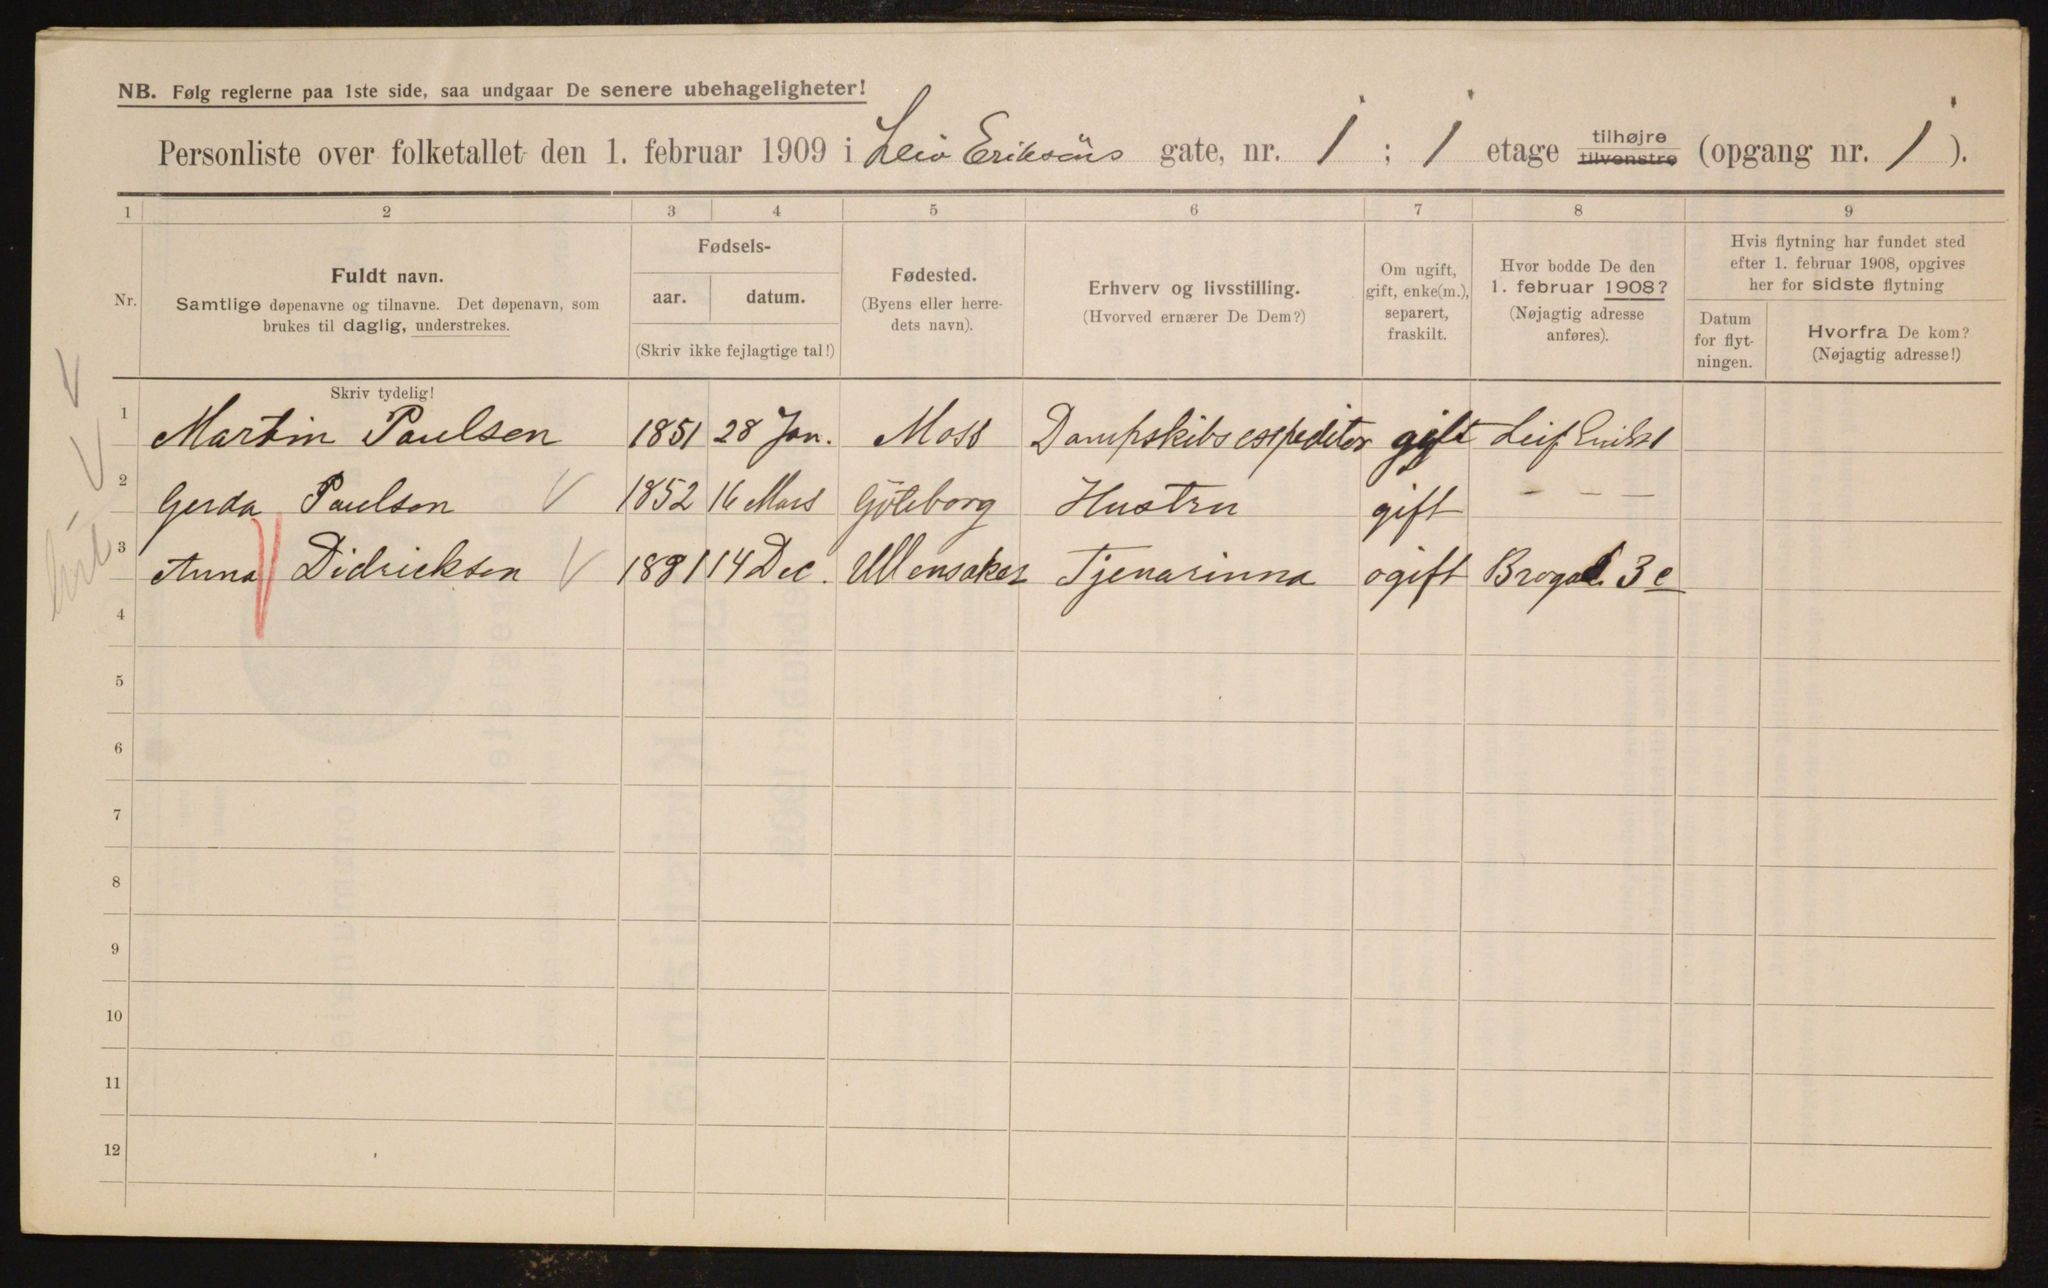 NB. Følg reglerne paa 1ste side, saa undgaar De senere ubehageligheter!
Personliste over folketallet den 1. februar 1909 i Leiv Eriksöns gate, nr. 1 ; 1 etage tilhøjre tilvenstre (opgang nr. 1 ).
1 2 3 4 5 6 7 8 9
Nr.
Fuldt navn.
Samtlige døpenavne og tilnavne. Det døpenavn, som
brukes til daglig, understrekes.
Skriv tydelig!
Fødsels-
aar. datum.
(Skriv ikke fejlagtige tal!)
Fødested.
(Byens eller herre-
dets navn).
Erhverv og livsstilling.
(Hvorved ernærer De Dem?)
Om ugift,
gift, enke(m.),
separert,
fraskilt.
Hvor bodde De den
1. februar 1908?
(Nøjagtig adresse
anføres).
Hvis flytning har fundet sted
efter 1. februar 1908, opgives
her for sidste flytning
Datum
for flyt-
ningen.
Hvorfra De kom?
(Nøjagtig adresse!)
1 Martin Paulsen 1851 28 Jan. Moss Dampskibsexpeditör gift Leif Eriks 1
2 Gerda Paulson 1852 16 Mars Göteborg Hustru gift — — —
3 Anna Didricksen 1881 14 Dec. Ullensaker Tjenarinna ogift Brogad. 3 c
4
5
6
7
8
9
10
11
12